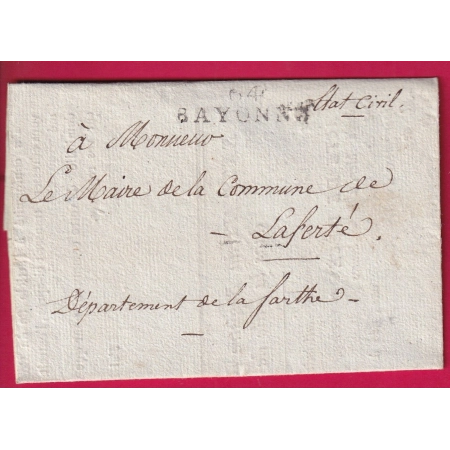 64
BAYONNE
Etat Civil.
à Monsieur
Le Maire de la Commune de
- Laferté.
Département de la sarthe -